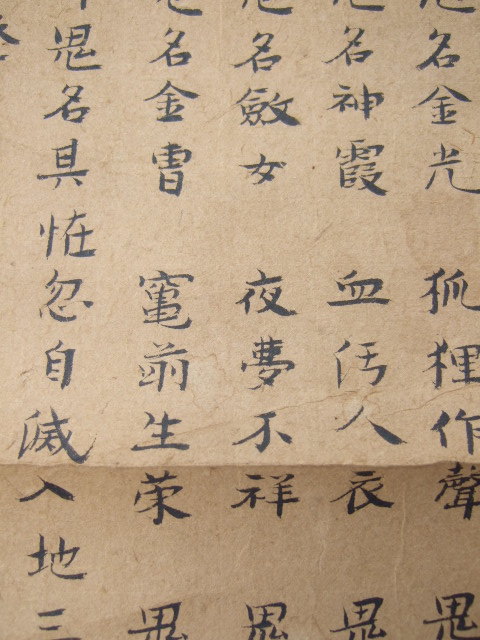 名金光 狐狸作聲 鬼
名神霞 血汚人衣 鬼
名斂女 夜夢不祥 鬼
名金曹 竃前生荣 鬼
鬼名具恠忽自滅入地三